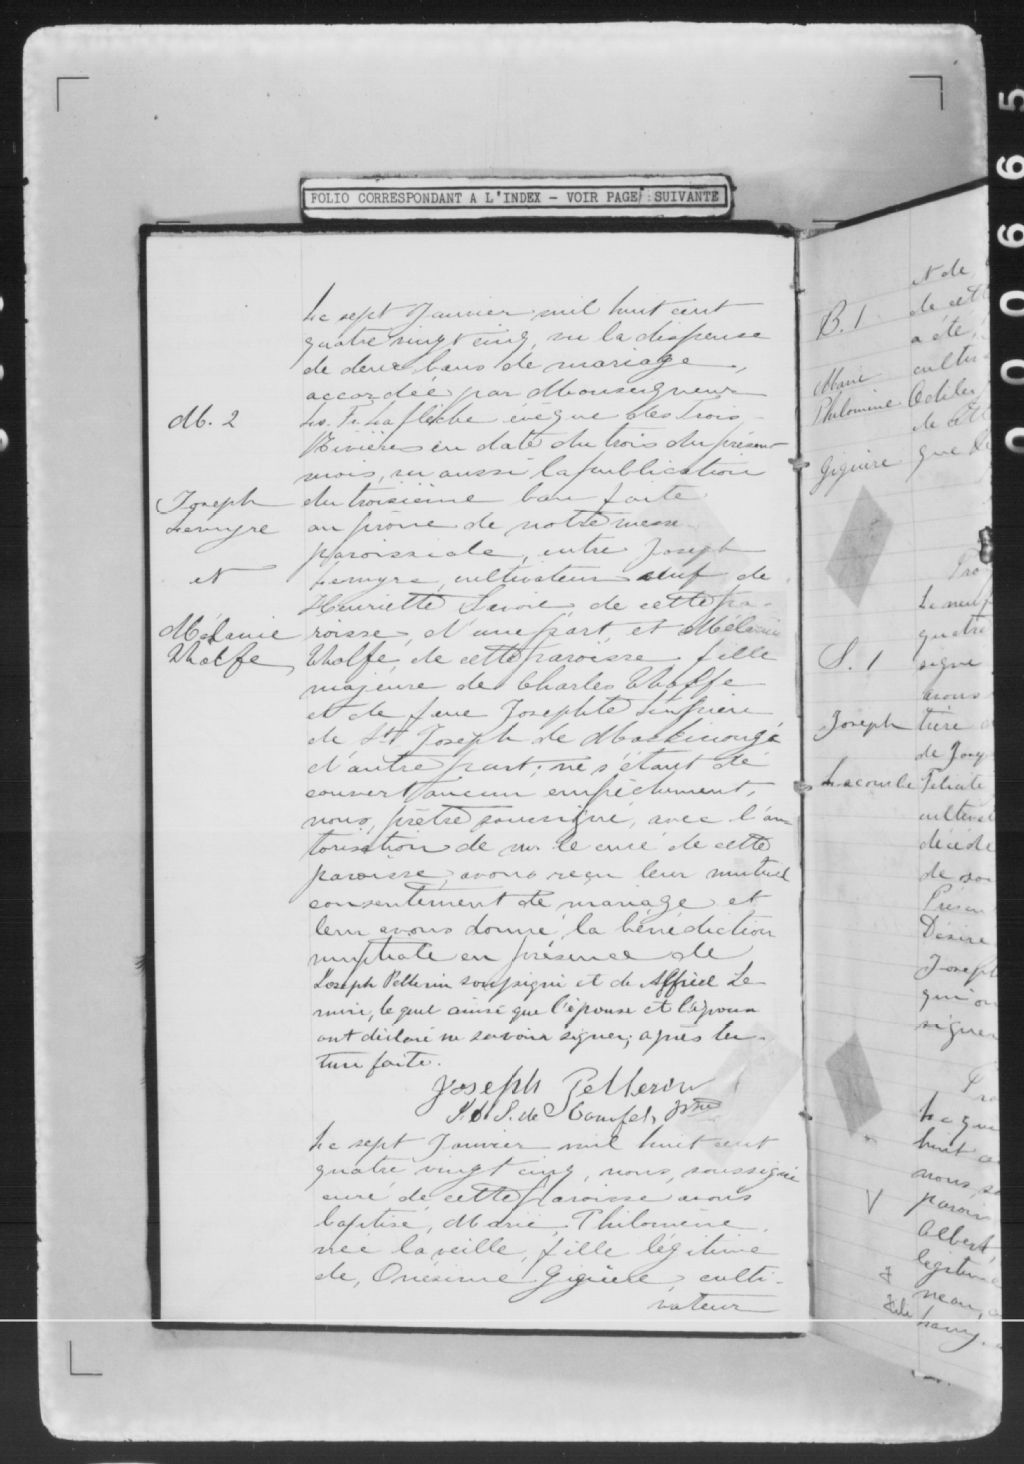 FOLIO CORRESPONDANT A L'INDEX - VOIR PAGE SUIVANTE
00665
M. 2
Joseph
Lemyre
et
Mélanie
Wholfe
Le sept Janvier mil huit cent
quatre vingt cinq, vu la dispense
de deux bans de mariage,
accordée par Monseigneur
Ls. Fs. Laflèche évêque des Trois-
Rivières en date du trois du présent
mois, vu aussi la publication
du troisième ban faite
au prône de notre messe
paroissiale, entre Joseph
Lemyre, cultivateur veuf de
Henriette Savoie, de cette pa-
roisse, d'une part, et Mélanie
Wholfe, de cette paroisse fille
majeure de Charles Wholfe
et de feue Josephte
de St Joseph de Maskinongé
d'autre part; ne s'étant dé
couvert aucun empêchement,
nous, prêtre soussigné, avec l'au
torisation de mr le curé de cette
paroisse, avons reçu leur mutuel
consentement de mariage et
leur avons donné la bénédiction
nuptiale en présence de
Joseph Pellerin soussigné et de Alfred Le
mire, lequel ainsi que l'épouse et l'époux
ont déclaré ne savoir signer; après lec-
ture faite.
Joseph Pellerin
Le sept Janvier mil huit cent
quatre vingt cinq, nous, soussigné
curé de cette paroisse avons
baptisé, Marie, Philomène
née la veille, fille légitime
de, Onésime Giguère, culti-
vateur
B. 1
Marie
Philomène
Giguère
S. 1
Joseph
Lacourse
et de
de cett
a été
cultiv
Odile
de cett
que
Le neuf
quatre
signé
avons
de Josep
cultivat
décédé
de son
Présen
Désiré
Joseph
qui on
signer
huit c
nous, so
parois
Albert,
légitime